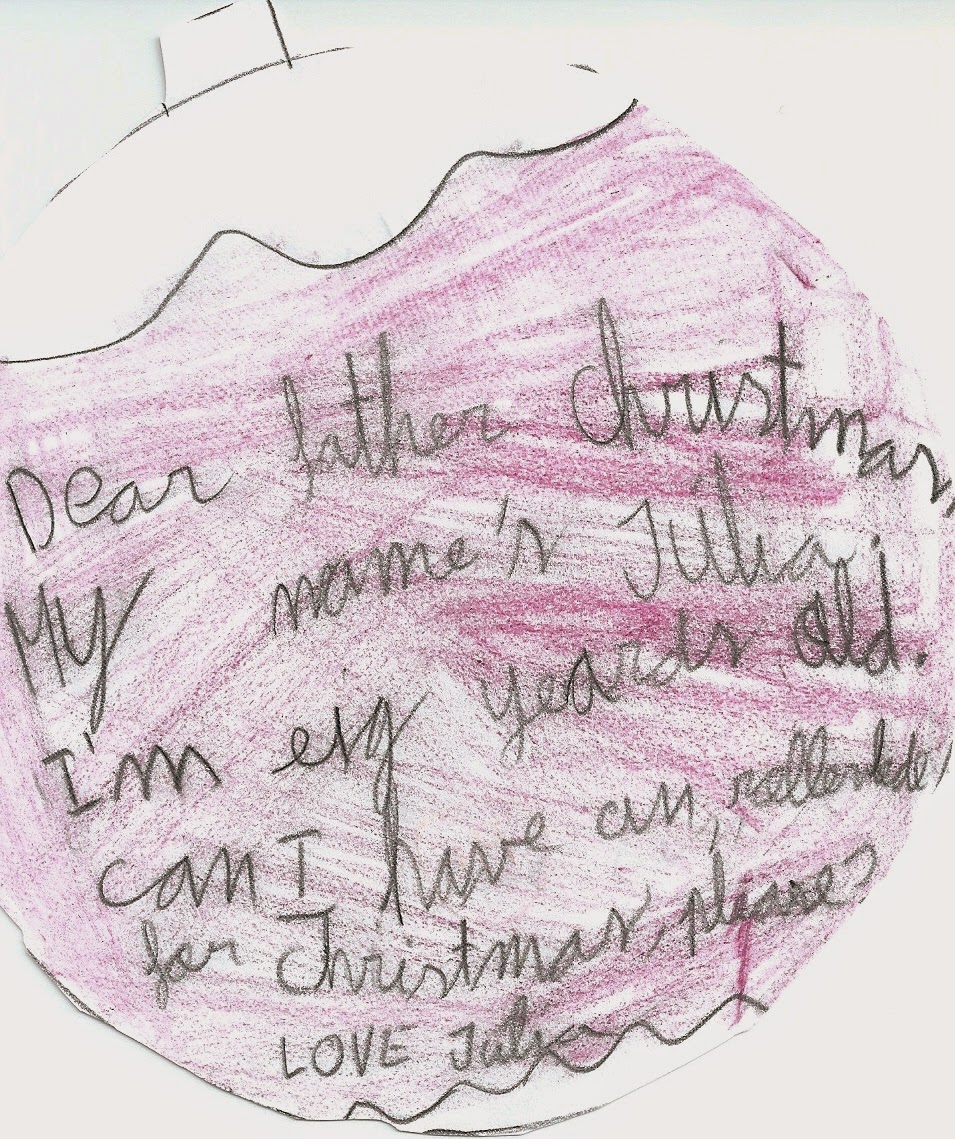 Dear father Christmas,
My name's Julia.
I'm eig years old.
can I have an
for Christmas, please?
LOVE Julia